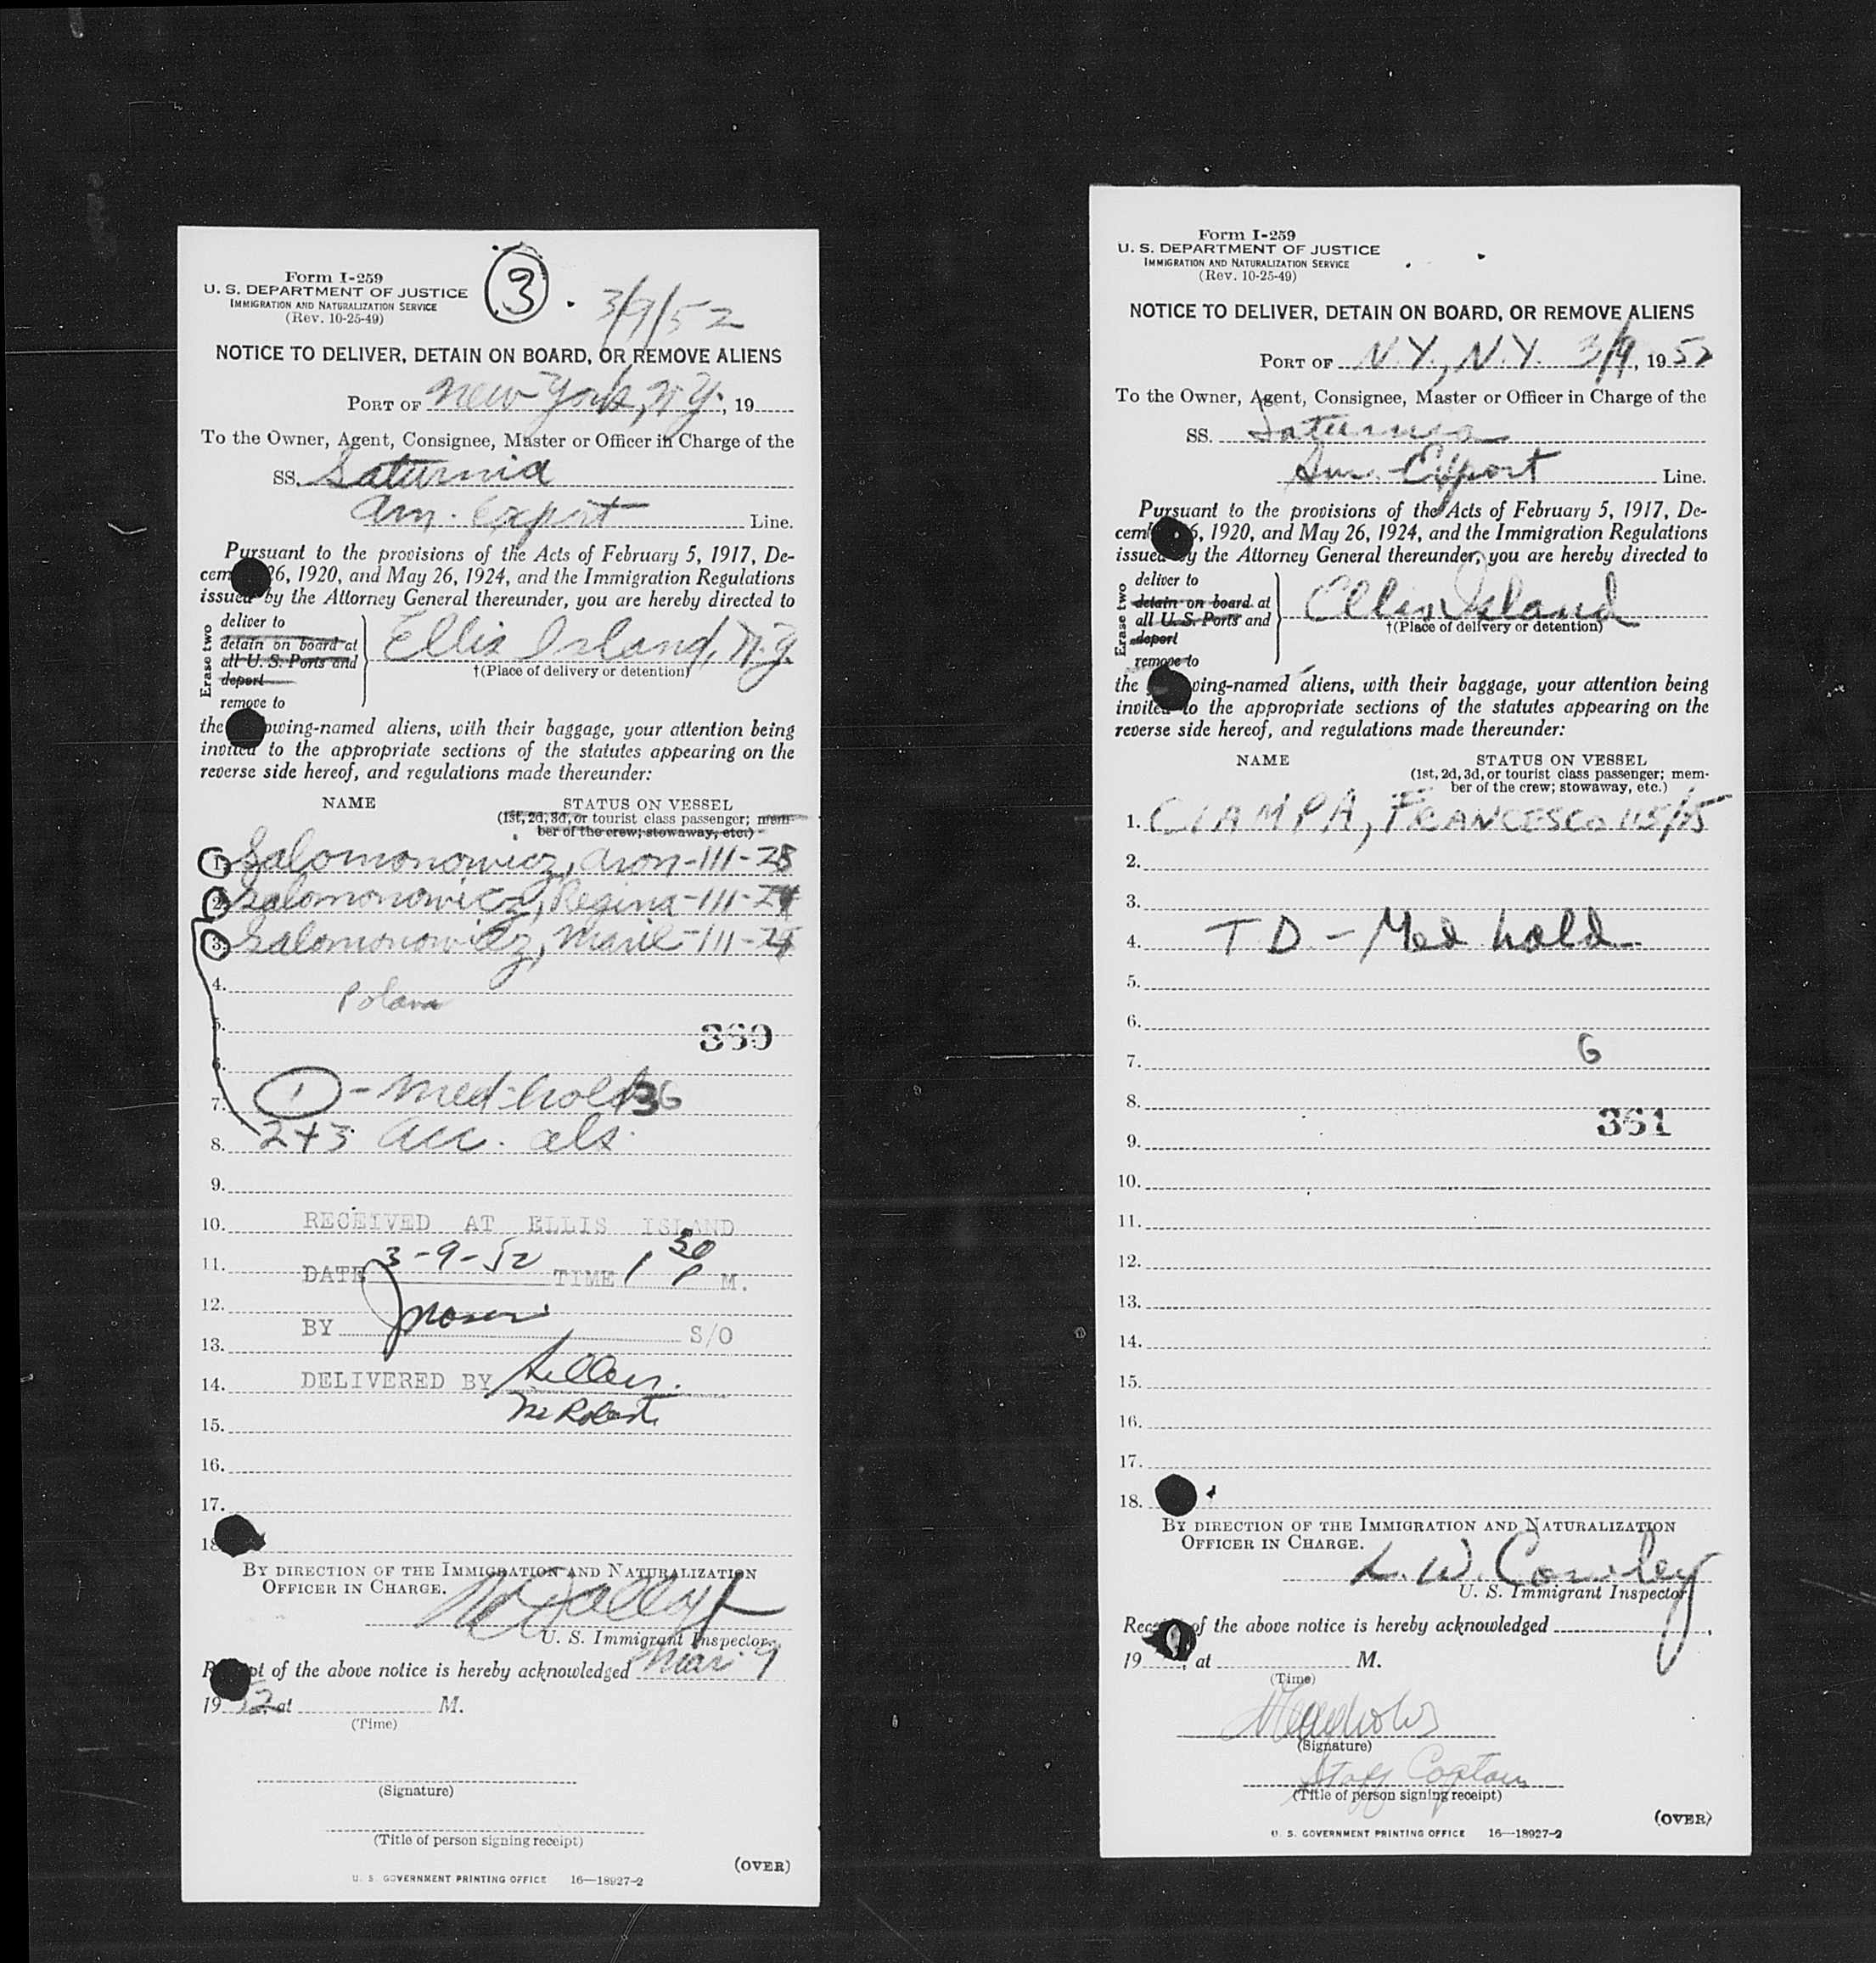 Form I-259
U. S. DEPARTMENT OF JUSTICE
IMMIGRATION AND NATURALIZATION SERVICE
(Rev. 10-25-49)
3
3/9/52
NOTICE TO DELIVER, DETAIN ON BOARD, OR REMOVE ALIENS
PORT OF New York, N.Y., 19
To the Owner, Agent, Consignee, Master or Officer in Charge of the
SS. Saturnia
Am. Export Line.
Pursuant to the provisions of the Acts of February 5, 1917, De-
cem 26, 1920, and May 26, 1924, and the Immigration Regulations
issued by the Attorney General thereunder, you are hereby directed to
Erase two
deliver to
detain on board at
all U. S. Ports and
deport
remove to
Ellis Island, N.Y.
†(Place of delivery or detention)
the owing-named aliens, with their baggage, your attention being
invited to the appropriate sections of the statutes appearing on the
reverse side hereof, and regulations made thereunder:
NAME STATUS ON VESSEL
(1st, 2d, 3d, or tourist class passenger; mem-
ber of the crew; stowaway, etc.)
1. Salomonowicz, Aron-111-25
2. Salomonowicz, Regina-111-24
3. Salomonowicz, Marie-111-24
4.
5. 360
6.
7. 1 - Med-hold 36
8. 2+3 Acc. als.
9.
10. RECEIVED AT ELLIS ISLAND
11. DATE 3-9-52 TIME 1 30 P M.
12.
BY S/O
13.
14. DELIVERED BY
15.
16.
17.
18
BY DIRECTION OF THE IMMIGRATION AND NATURALIZATION
OFFICER IN CHARGE.
U. S. Immigrant Inspector.
Receipt of the above notice is hereby acknowledged Mar. 9
19 52 at M.
(Time)
(Signature)
(Title of person signing receipt)
(OVER)
U. S. GOVERNMENT PRINTING OFFICE 16—18927-2
Form I-259
U. S. DEPARTMENT OF JUSTICE
IMMIGRATION AND NATURALIZATION SERVICE
(Rev. 10-25-49)
NOTICE TO DELIVER, DETAIN ON BOARD, OR REMOVE ALIENS
PORT OF N.Y., N.Y. 3/9, 1952
To the Owner, Agent, Consignee, Master or Officer in Charge of the
SS. Saturnia
Am. Export Line.
Pursuant to the provisions of the Acts of February 5, 1917, De-
cem 6, 1920, and May 26, 1924, and the Immigration Regulations
issued by the Attorney General thereunder, you are hereby directed to
Erase two
deliver to
detain on board at
all U. S. Ports and
deport
remove to
Ellis Island
†(Place of delivery or detention)
the wing-named aliens, with their baggage, your attention being
invited to the appropriate sections of the statutes appearing on the
reverse side hereof, and regulations made thereunder:
NAME STATUS ON VESSEL
(1st, 2d, 3d, or tourist class passenger; mem-
ber of the crew; stowaway, etc.)
1. CIAMPA, FRANCESCO 115/25
2.
3.
4. T D - Med hold
5.
6.
7. 6
8.
9. 361
10.
11.
12.
13.
14.
15.
16.
17.
18.
BY DIRECTION OF THE IMMIGRATION AND NATURALIZATION
OFFICER IN CHARGE.
L. W. Cowley
U. S. Immigrant Inspector.
Rec of the above notice is hereby acknowledged
19 , at M.
(Time)
(Signature)
Staff Captain
(Title of person signing receipt)
(OVER)
U. S. GOVERNMENT PRINTING OFFICE 16—18927-2